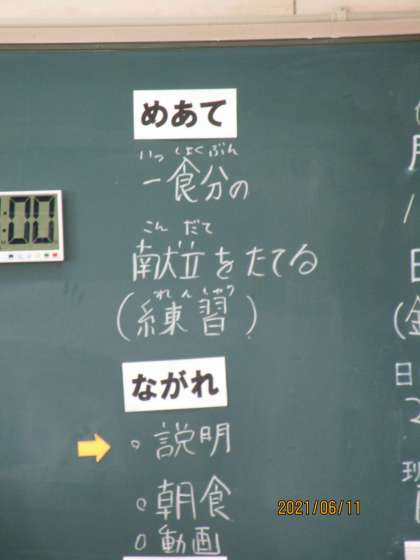 めあて
いっしょくぶん
一食分の
こんだて
献立をたてる
れんしゅう
(練習)
ながれ
。説明
。朝食
。動画
:00
月
日
(金
日
2021/06/11